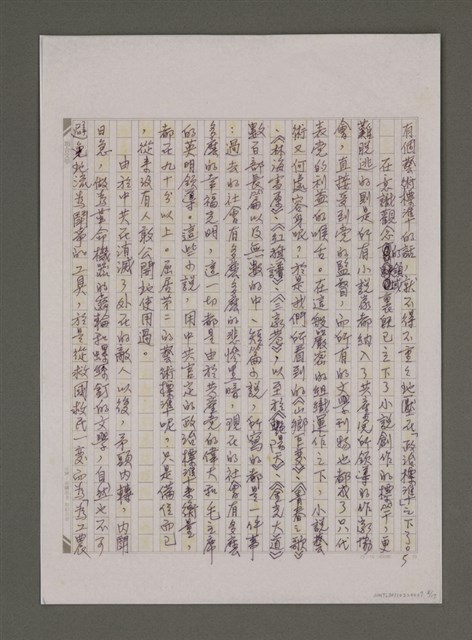 有個藝術標準的話，就不得不重重地壓在「政治標準」之下了。5
在意識觀念的領域裏既已立下了小說創作的標竿，更
難脫逃的則是所有小說家都納入了共產黨所領導的作家協
會，直接受到黨的監督，而所有的文學刊物也都成了只代
表黨的利益的喉舌。在這般嚴密的組織運作之下，小說藝
術又何處容身呢？於是我們所看到的《山鄉巨變》、《青春之歌》
、《林海雪原》、《紅旗譜》、《三家巷》，以至於《豔陽天》、《金光大道》
數百部長篇以及無數的中、短篇小說，所寫的都是一件事
：過去的社會有多麼多麼的悲慘黑暗，現在的社會有多麼
多麼的幸福光明，這一切都是由於共產黨的偉大和毛主席
的英明領導。這些小說，用中共定的政治標準來衡量，
都在九十分以上。屈居第二的藝術標準呢？只是備位而已
，從來沒有人敢公開地使用過。
由於中共在消滅了外在的敵人以後，吊頭內轉，內鬥
日急，做為革命機器的齒輪和螺絲釘的文學，自然也不可
避免地流為鬥爭的工具，於是從救國救民一變而為「為工農